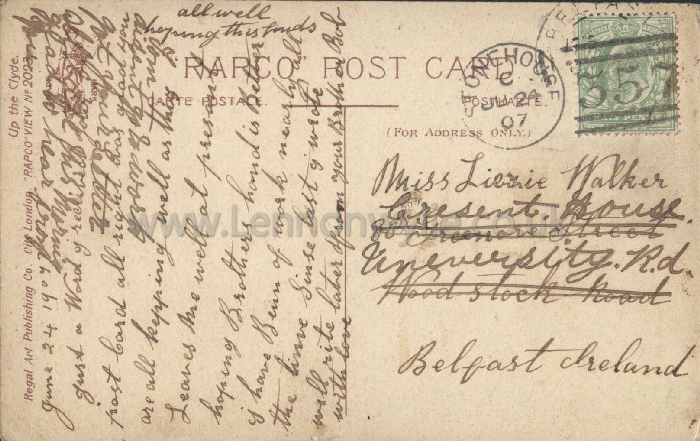 all well
hoping this finds
"RAPCO" POST CARD
CARTE POSTALE.
POSTKARTE.
(FOR ADDRESS ONLY.)
STONEHOUSE
C
JU 24
07
357
Miss Lizzie Walker
Cresent House
Street
Uneversity Rd.
Woodstock Road
Belfast Ireland
Up the Clyde.
"RAPCO" VIEW No 2023
Regal Art Publishing Co. City London.
www.Lennonwylie.co.uk
June 24 1907
just a Word y recived
post Card all right was glad you
are all kepping well as they
Leaves me well at present
hoping Brothers hand is better
is have Benn of work nearly all
the time Sinse last y wrote
well rite later from your Brother Bob
with love